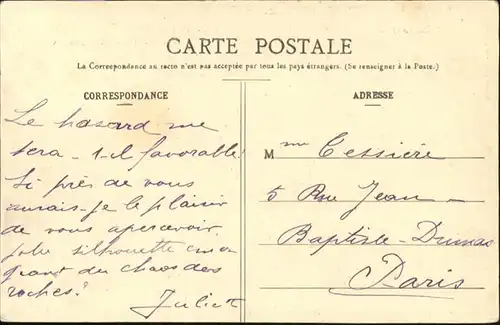 CARTE POSTALE
La Correspondance au recto n'est pas acceptée par tous les pays étrangers. (Se renseigner à la Poste.)
CORRESPONDANCE
Le hasard me
sera-t-il favorable!
Si près de vous
aurais-je le plaisir
de vous apercevoir
jolie silhouette
du chaos des
roches?
Juliette
ADRESSE
Mme Tessière
5 Rue Jean-
Baptiste-Dumas
Paris